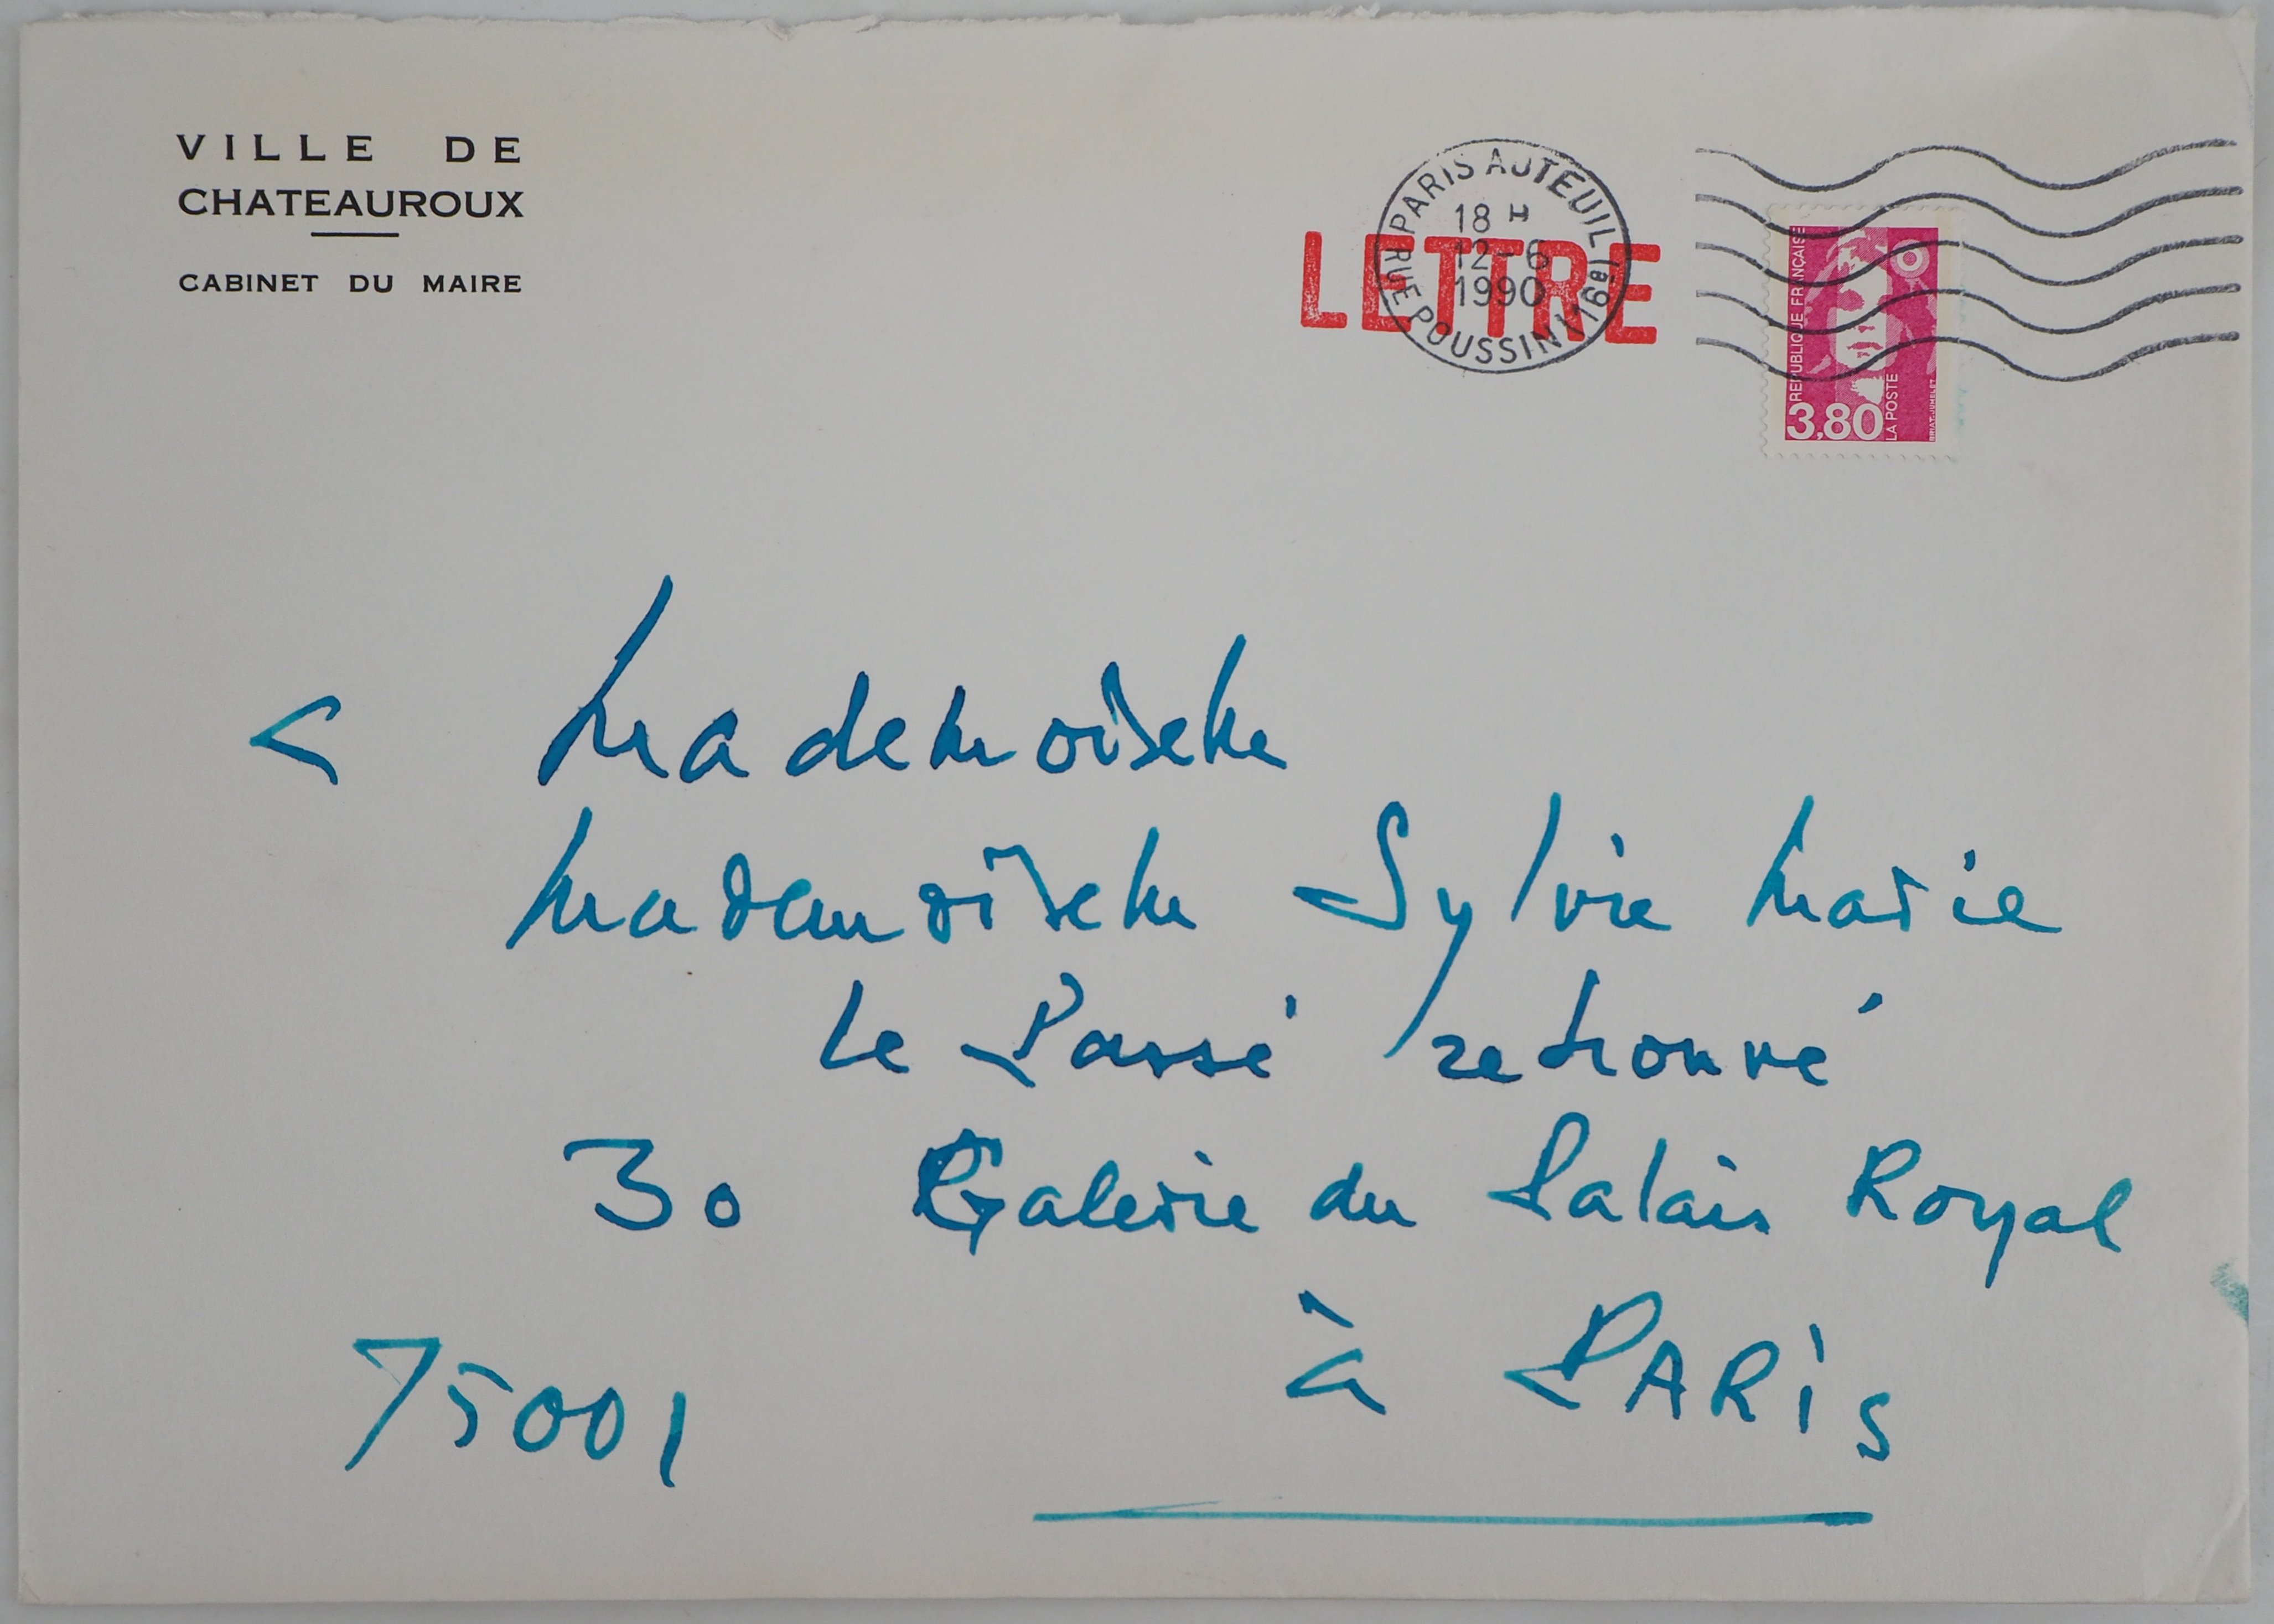 VILLE DE
CHATEAUROUX
CABINET DU MAIRE
PARIS AUTEUIL (16e)
18 H
12-6
1990
RUE POUSSIN
LETTRE
REPUBLIQUE FRANÇAISE
3,80
LA POSTE
Mademoiselle
Mademoiselle Sylvie Marie
Le Passé retrouvé
30 Galerie du Palais Royal
75001 à PARIS